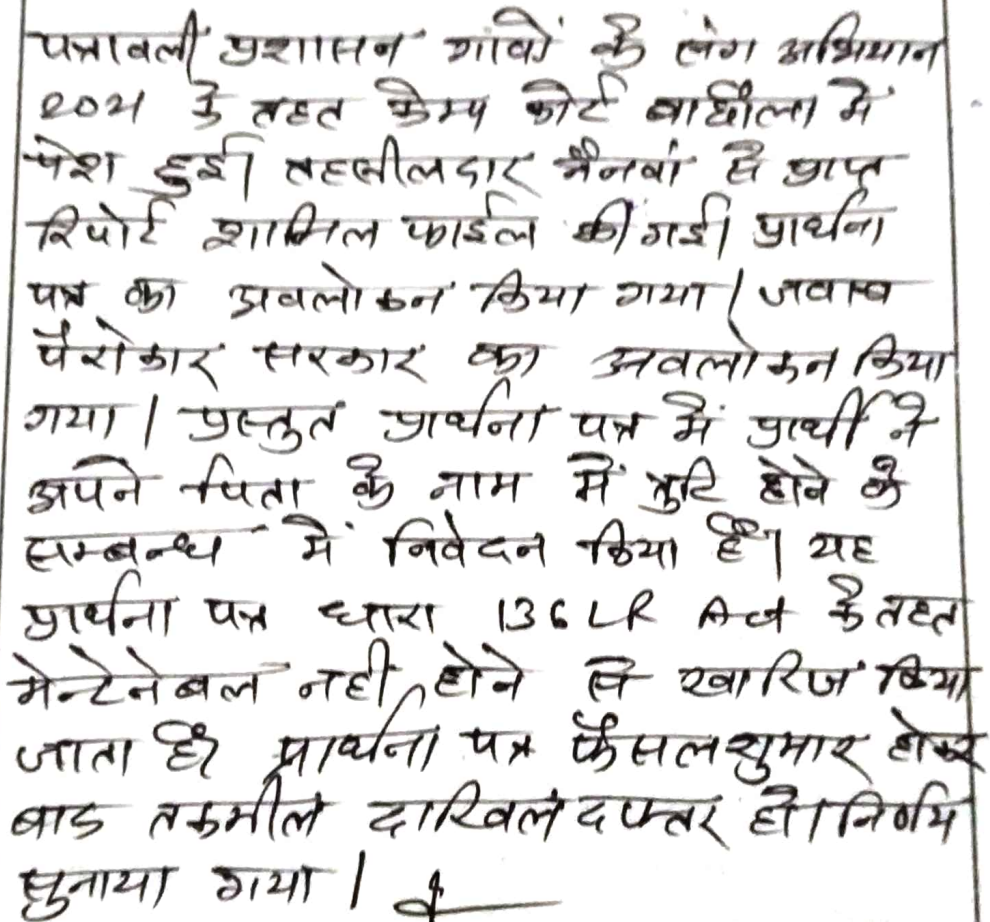 पत्रावली प्रशासन गांवों के संग अभियान
2021 के तहत केम्प कोर्ट बाछौला में
पेश हुई। तहसीलदार नैनवां से प्राप्त
रिपोर्ट शामिल फाईल की गई। प्रार्थना
पत्र का अवलोकन किया गया। जवाब
पैरोकार सरकार का अवलोकन किया
गया। प्रस्तुत प्रार्थना पत्र में प्रार्थी ने
अपने पिता के नाम में त्रुटि होने के
सम्बन्ध में निवेदन किया है। यह
प्रार्थना पत्र धारा 136 LR Act के तहत
मेन्टेनेबल नही होने से खारिज किया
जाता है। प्रार्थना पत्र फैसलशुमार होकर
बाड तकमील दाखिल दफ्तर हो। निर्णय
सुनाया गया।